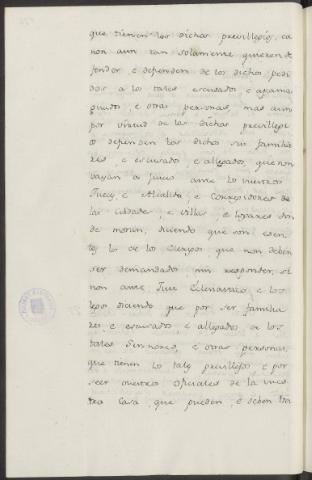 que tienen los dichos previllegios, ca
non aun tan solamente quieren de
fender, e defienden de los dichos pedi
dos a los tales escusados e apania
guados, e otras personas, mas aun
por virtud de los dichos previllegi
os defienden los dichos sus familia
res, e escusados e allegados, que non
vayan a juicio ante los vuestros
Jueces e Alcaldes, e Corregidores de
las cibdades, e villas, e logares don
de moran, diciendo que son esen
tos los de los cuerpos que non deben
ser demandados nin responder, si
non ante Juez Eclesiastico, e los
legos diciendo que por ser familia
res e escusados e allegados de los
tales Sennores, e otras personas,
que tienen los tales previllejos e por
seer vuestros oficiales de la vues
tra Casa, que pueden, e deben tra